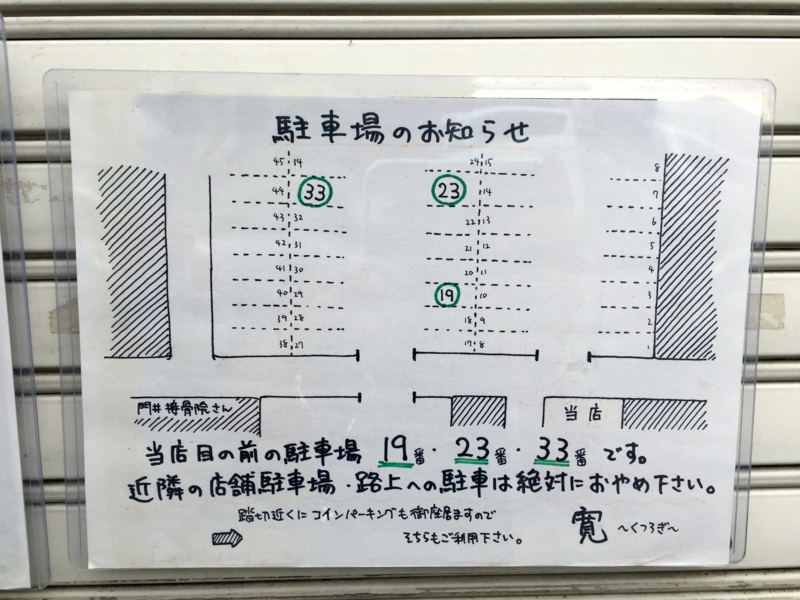 駐車場のお知らせ
45 14 24 15 8
44 33 23 14 7
43 32 22 13 6
42 31 21 12 5
41 30 20 11 4
40 29 19 10 3
39 28 18 9 2
38 27 17 8 1
門井接骨院さん 当店
当店目の前の駐車場 19番・23番・33番です。
近隣の店舗駐車場・路上への駐車は絶対におやめ下さい。
踏切近くにコインパーキングも御座居ますので
そちらもご利用下さい。
寛 〜くつろぎ〜